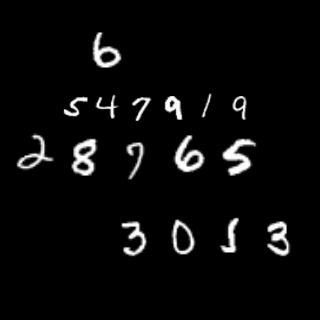 6
547919
28765
3053